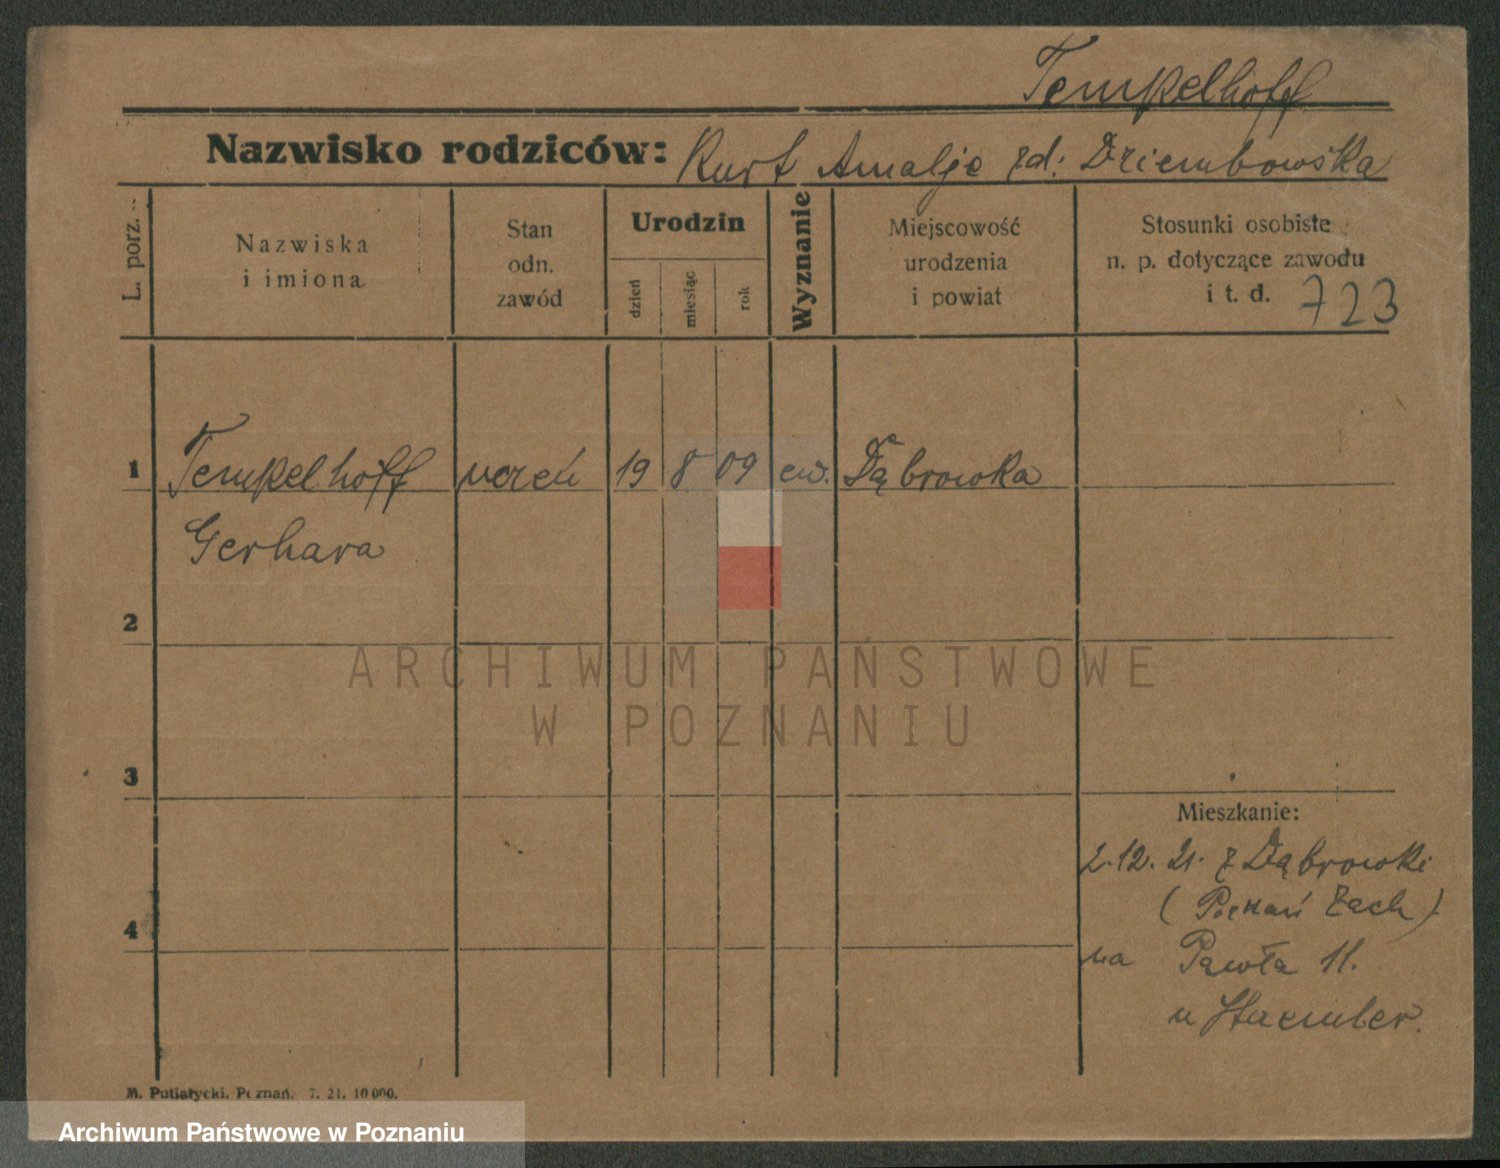 Tempelhoff
Nazwisko rodziców: Kurt Amalje zd: Dziembowska
L. porz.
Nazwiska
i imiona
Stan
odn.
zawód
Urodzin
dzień
miesiąc
rok
Wyznanie
Miejscowość
urodzenia
i powiat
Stosunki osobiste
n. p. dotyczące zawodu
i t. d. 723
1 Tempelhoff uczeń 19 8 09 ew. Dąbrowka
Gerhard
2
ARCHIWUM PAŃSTWOWE
W POZNANIU
3
Mieszkanie:
2.12. 21. z Dąbrowki
(Poznań Zach)
4
na Pawła 11.
u
M. Putiatycki, Poznań. 7. 21. 10 000.
Archiwum Państwowe w Poznaniu